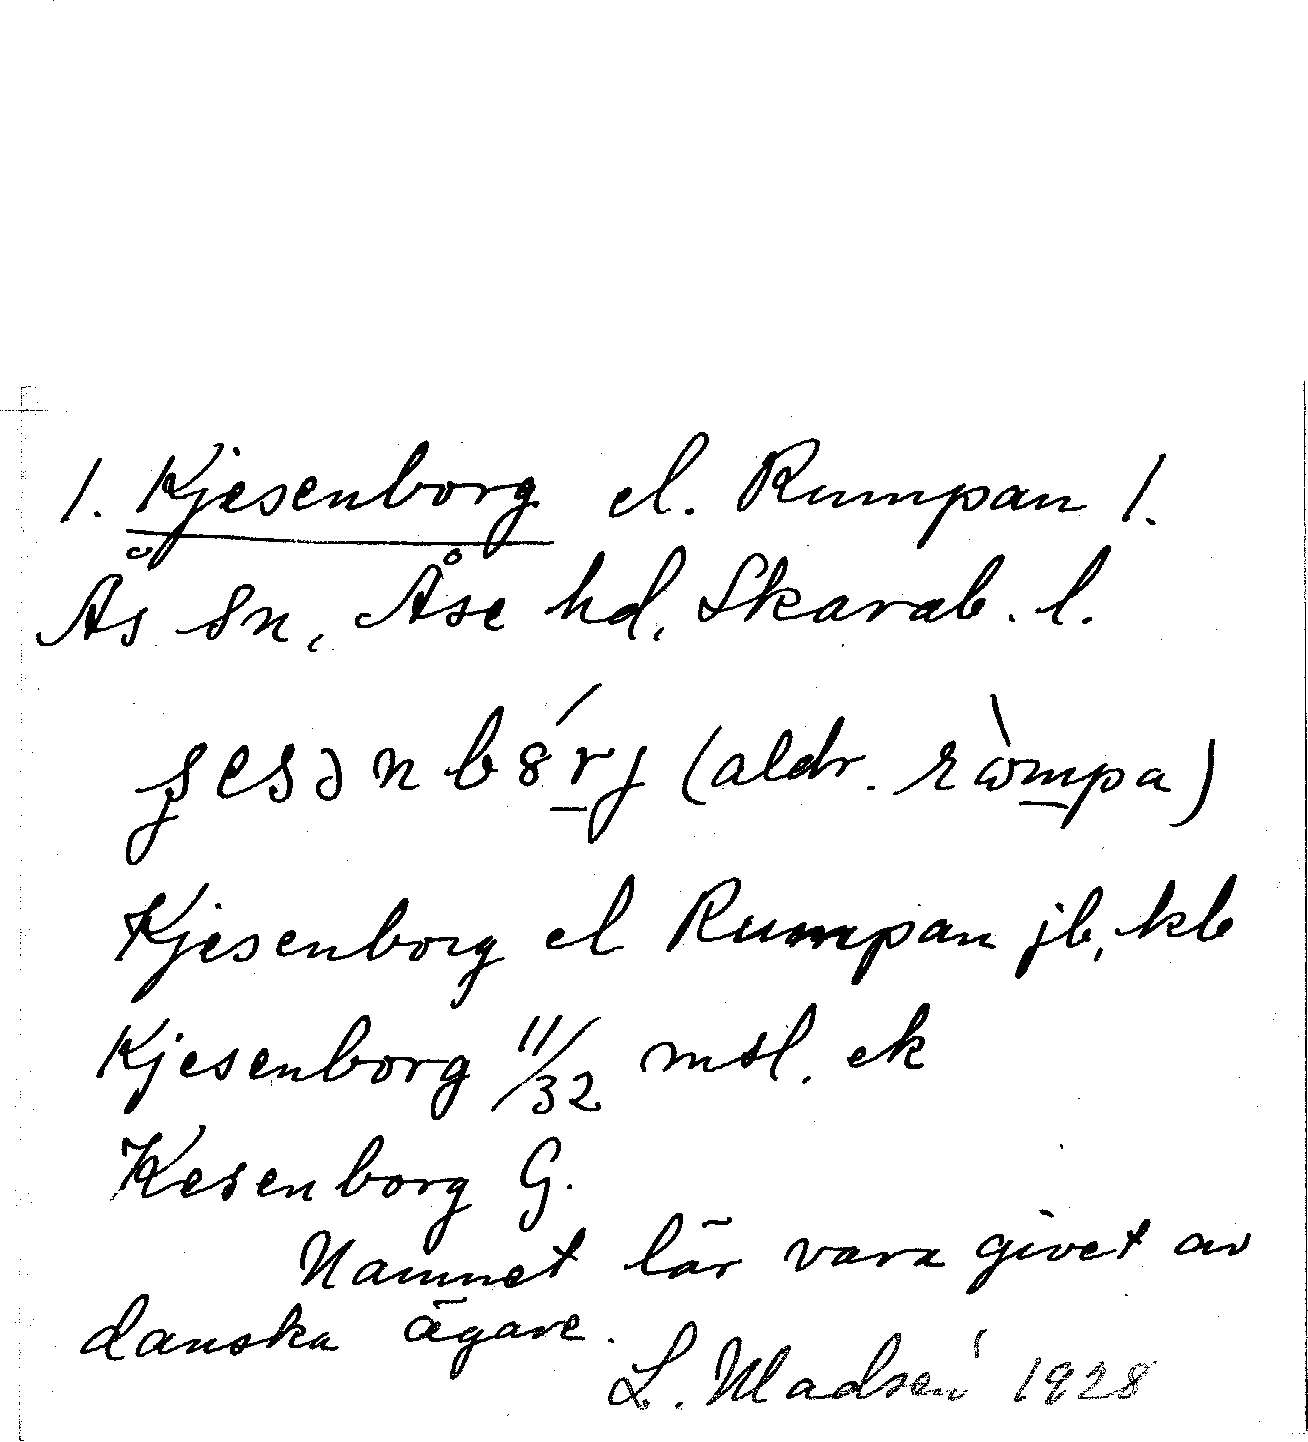 1. Kjesenborg el. Rumpan 1.
Ås sn, Åse hd, Skarab. l.
(aldr. ròmpa)
Kjesenborg el Rumpan jb, kb
Kjesenborg 11/32 msl. ek
Kesenborg G.
Namnet lär vara givet av
danska ägare.
L. Madsén 1928